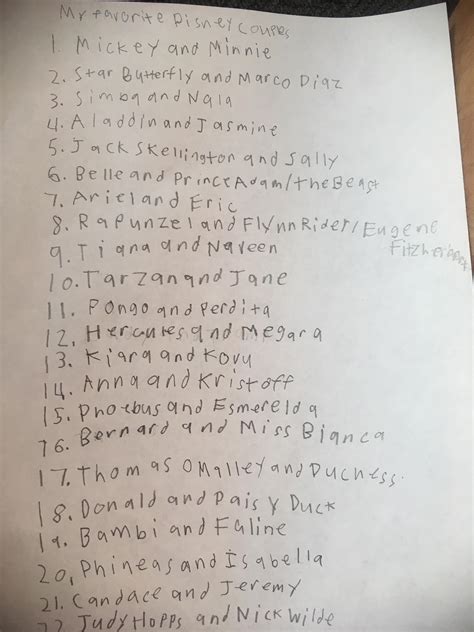 My favorite Disney Couples
1. Mickey and Minnie
2. Star Butterfly and Marco Diaz
3. Simba and Nala
4. Aladdin and Jasmine
5. Jack Skellington and Sally
6. Belle and Prince Adam/the Beast
7. Ariel and Eric
8. Rapunzel and Flynn Rider/Eugene
Fitzherbert
9. Tiana and Naveen
10. Tarzan and Jane
11. Pongo and Perdita
12. Hercules and Megara
13. Kiara and Kovu
14. Anna and Kristoff
15. Phoebus and Esmerelda
16. Bernard and Miss Bianca
17. Thomas OMalley and Duchess.
18. Donald and Daisy Duck
19. Bambi and Faline
20, Phineas and Isabella
21. Candace and Jeremy
22 Judy Hopps and Nick Wilde